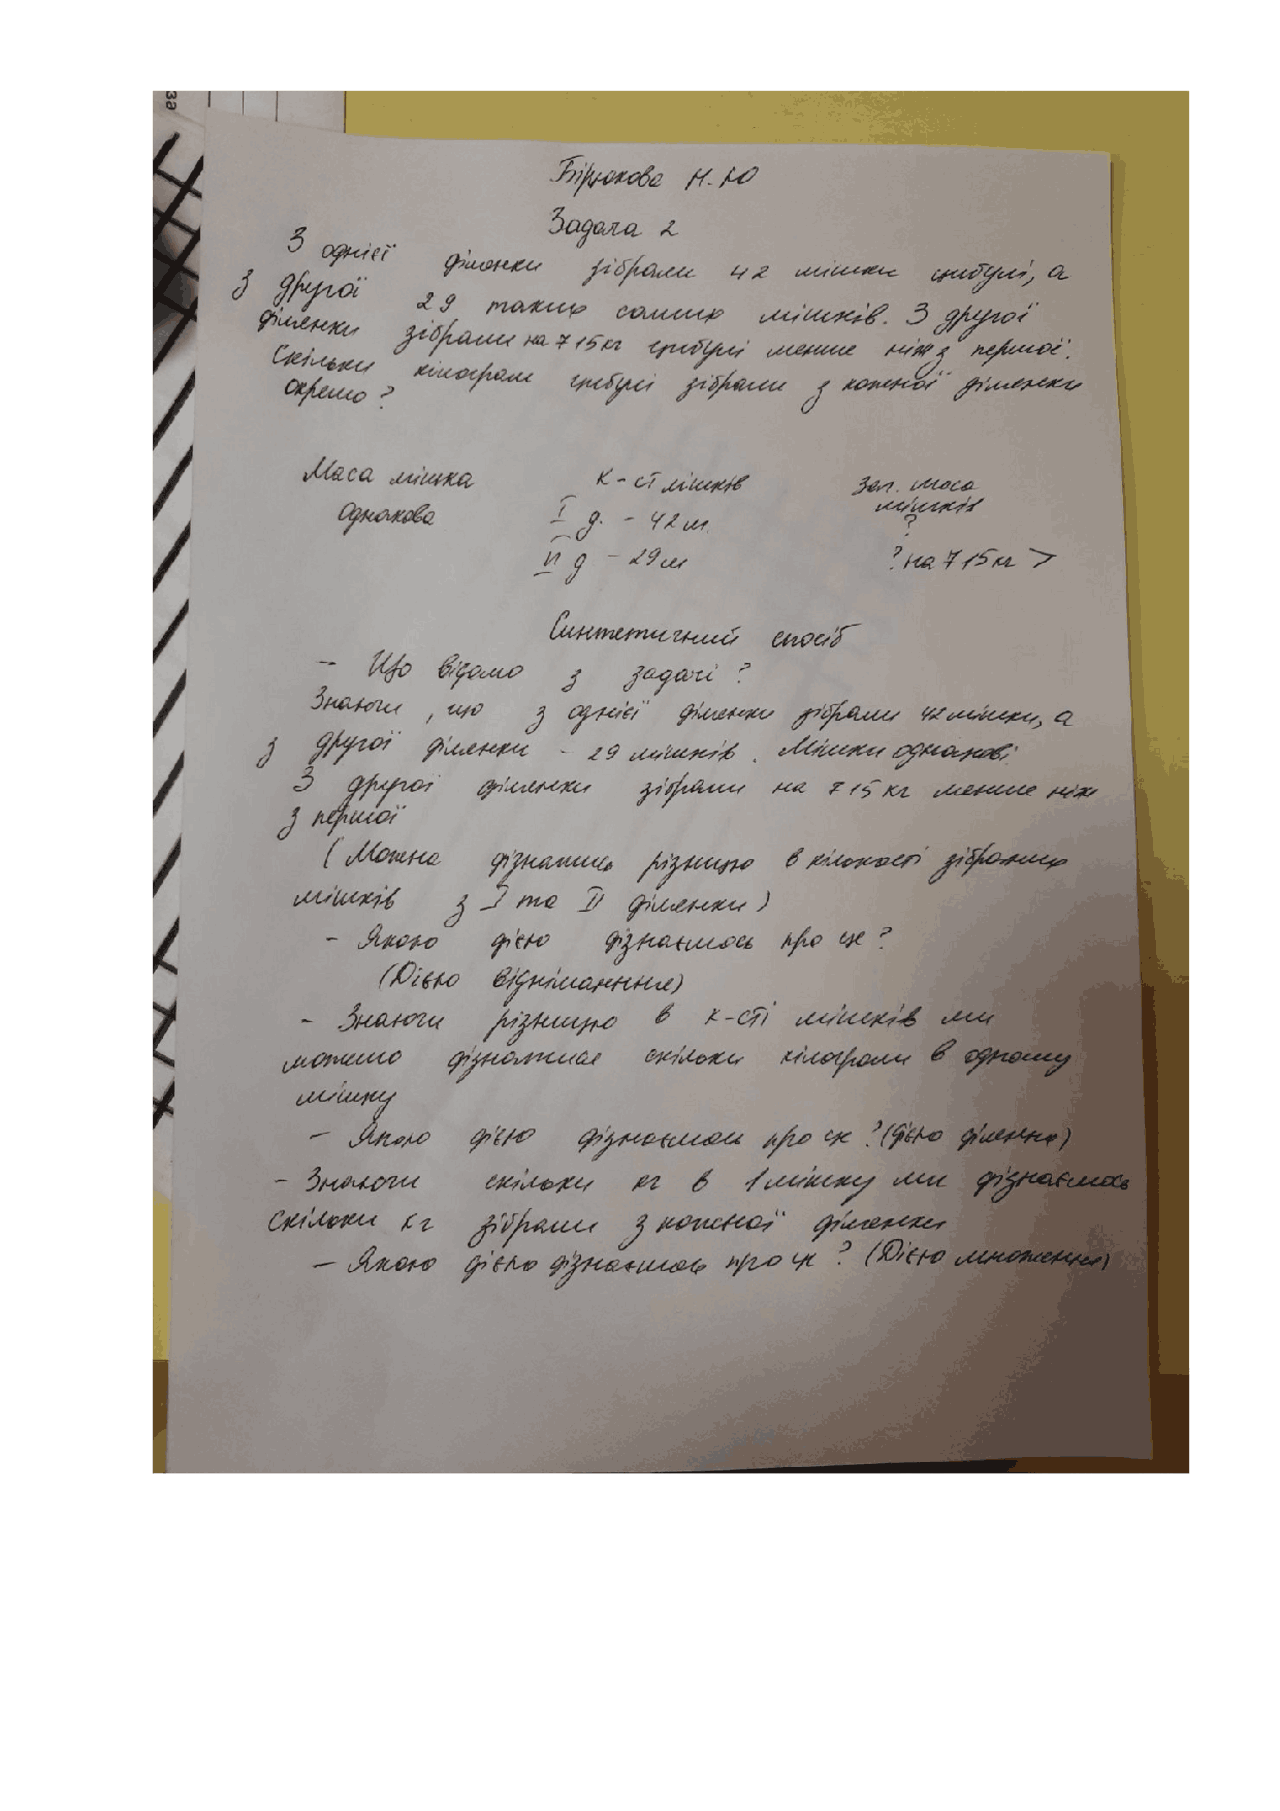 за
Бірюкова Н.Ю
Задача 2
З однієї ділянки зібрали 42 мішки цибулі, а
з другої 29 таких самих мішків. З другої
ділянки зібрали на 715кг цибулі менше ніж з першої.
Скільки кілограм цибулі зібрали з кожної ділянки
окремо?
Маса мішка К-сть мішків Заг. маса
мішків
Однакова I д. - 42 м. ?
II д - 29 м ? на 715кг >
Синтетичний спосіб
- Що відомо з задачі?
Знаючи, що з однієї ділянки зібрали 42 мішки, а
з другої ділянки - 29 мішків. Мішки однакові.
З другої ділянки зібрали на 715 кг менше ніж
з першої
(Можна дізнатись різницю в кількості зібраних
мішків з I та II ділянки)
- Якою дією дізнаємось про це?
(Дією віднімання)
- Знаючи різницю в к-сті мішків ми
можемо скільки кілограм в одному
мішку
- Якою дією дізнаємось про це? (Дією ділення)
- Знаючи скільки кг в 1 мішку ми дізнаємось
скільки кг зібрали з кожної ділянки
- Якою дією дізнаємось про це? (Дією множення)